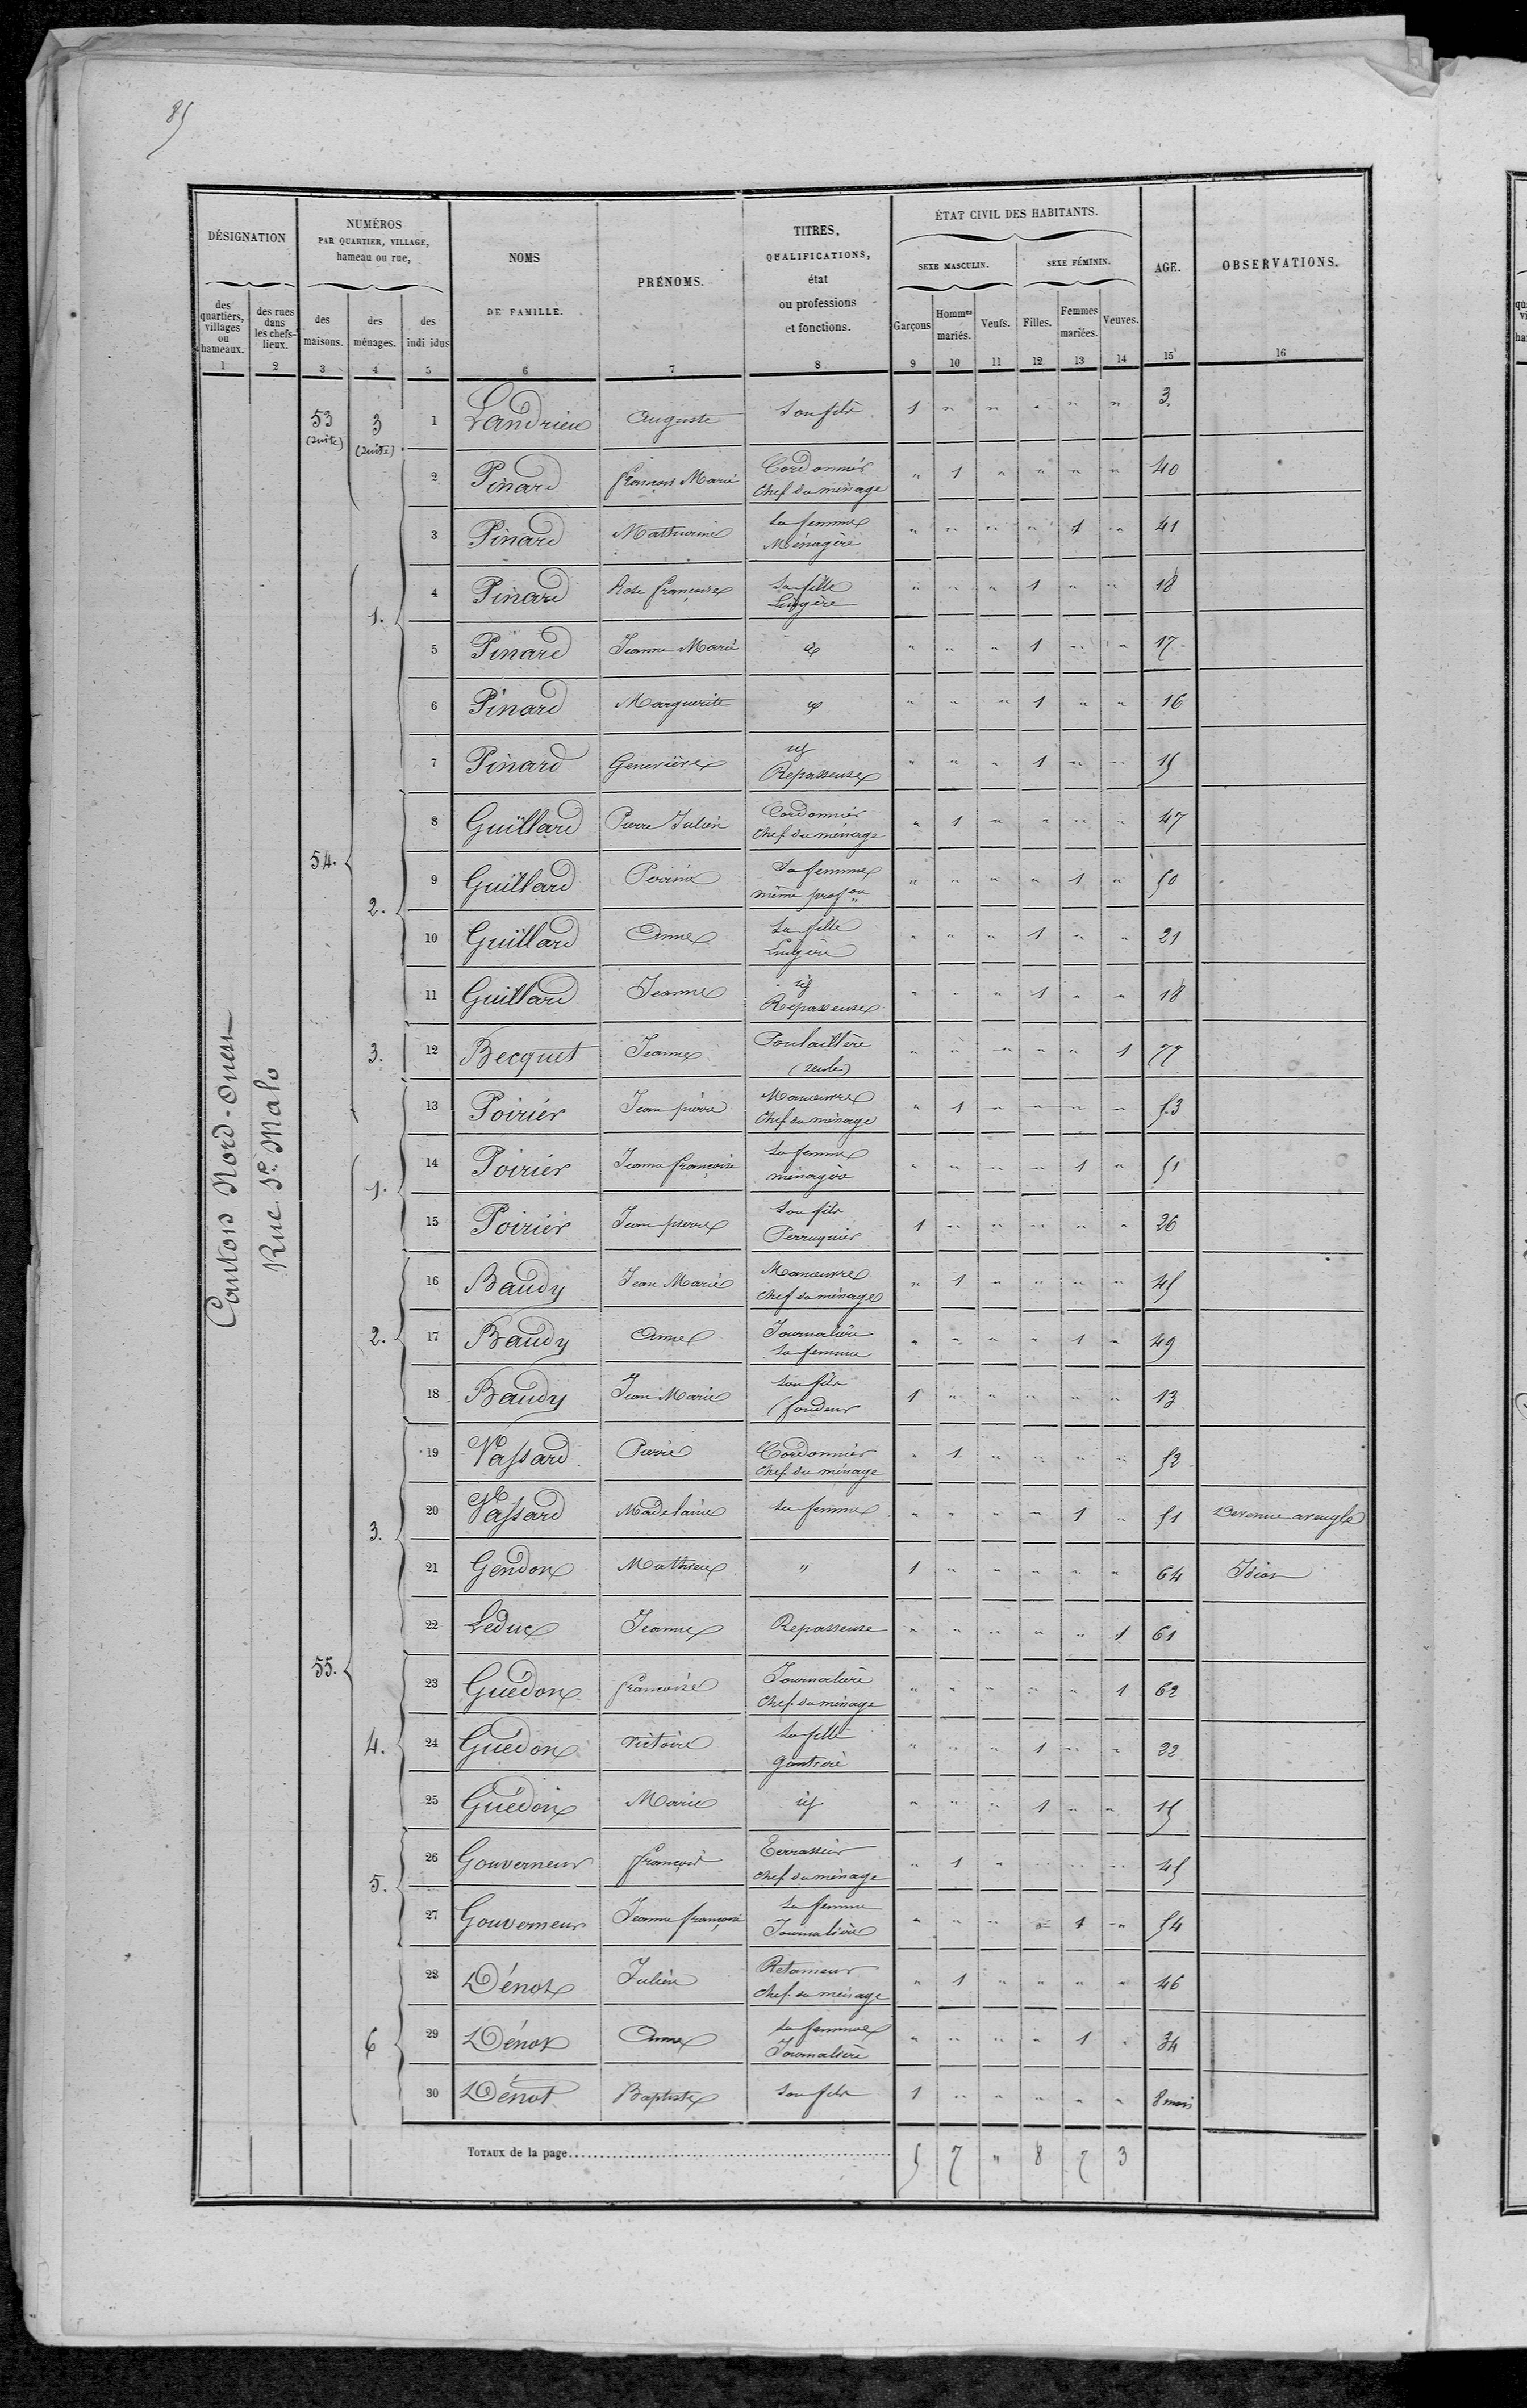 85
DÉSIGNATION
NUMÉROS
PAR QUARTIER, VILLAGE,
hameau ou rue,
NOMS
DE FAMILLE.
PRÉNOMS.
TITRES,
QUALIFICATIONS,
état
ou professions
et fonctions.
ÉTAT CIVIL DES HABITANTS.
SEXE MASCULIN.
SEXE FÉMININ.
AGE.
OBSERVATIONS.
des quartiers, villages ou hameaux.
des rues dans les chefs-lieux.
des maisons.
des ménages.
des indi idus
Garçons
Hommes mariés.
Veufs.
Filles.
Femmes mariées.
Veuves.
1 2 3 4 5 6 7 8 9 10 11 12 13 14 15 16
Canton Nord-Ouest
Rue St. Malo
53 (suite) 3 (suite) 1 Landrieu Auguste Son fils 1 " " " " " 3
54. 1. 2 Pinard françois Marie Cordonnier Chef du ménage " 1 " " " " 40
3 Pinard Mathurine Sa femme Ménagère " " " " 1 " 41
4 Pinard Rose françoise Sa fille Lingère " " " 1 " " 18
5 Pinard Jeanne Marie id " " " 1 " " 17
6 Pinard Marguerite id " " " 1 " " 16
7 Pinard Geneviève id Repasseuse " " " 1 " " 15
2. 8 Guillard Pierre Julien Cordonnier Chef du ménage " 1 " " " " 47
9 Guillard Perrine Sa femme même profon " " " " 1 " 50
10 Guillard Anne Sa fille Lingère " " " 1 " " 21
11 Guillard Jeanne id Repasseuse " " " 1 " " 18
3. 12 Becquet Jeanne Poulaillère (seule) " " " " " 1 77
55. 1. 13 Poirier Jean pierre Manœuvre Chef du ménage " 1 " " " " 53
14 Poirier Jeanne françoise Sa femme ménagère " " " " 1 " 51
15 Poirier Jean pierre Son fils Perruquier 1 " " " " " 26
2. 16 Baudy Jean Marie Manœuvre Chef du ménage " 1 " " " " 45
17 Baudy Anne Journalière Sa femme " " " " 1 " 49
18 Baudy Jean Marie Son fils fondeur 1 " " " " " 13
3. 19 Vassard Pierre Cordonnier Chef du ménage " 1 " " " " 52
20 Vassard Madelaine Sa femme " " " " 1 " 51 Devenue aveugle
21 Gendon Mathieu " 1 " " " " " 64 Idiot
22 Leduc Jeanne Repasseuse " " " " " 1 61
4. 23 Guédon françoise Journalière Chef du ménage " " " " " 1 62
24 Guédon Victoire Sa fille gantière " " " 1 " " 22
25 Guédon Marie id " " " 1 " " 15
5. 26 Gouverneur françois Terrassier Chef du ménage " 1 " " " " 45
27 Gouverneur Jeanne françoise Sa femme Journalière " " " " 1 " 54
6 28 Dénot Julien Retameur Chef du ménage " 1 " " " " 46
29 Dénot Anne Sa femme Journalière " " " " 1 " 34
30 Dénot Baptiste Son fils 1 " " " " " 8 mois
TOTAUX de la page 5 7 " 8 7 3